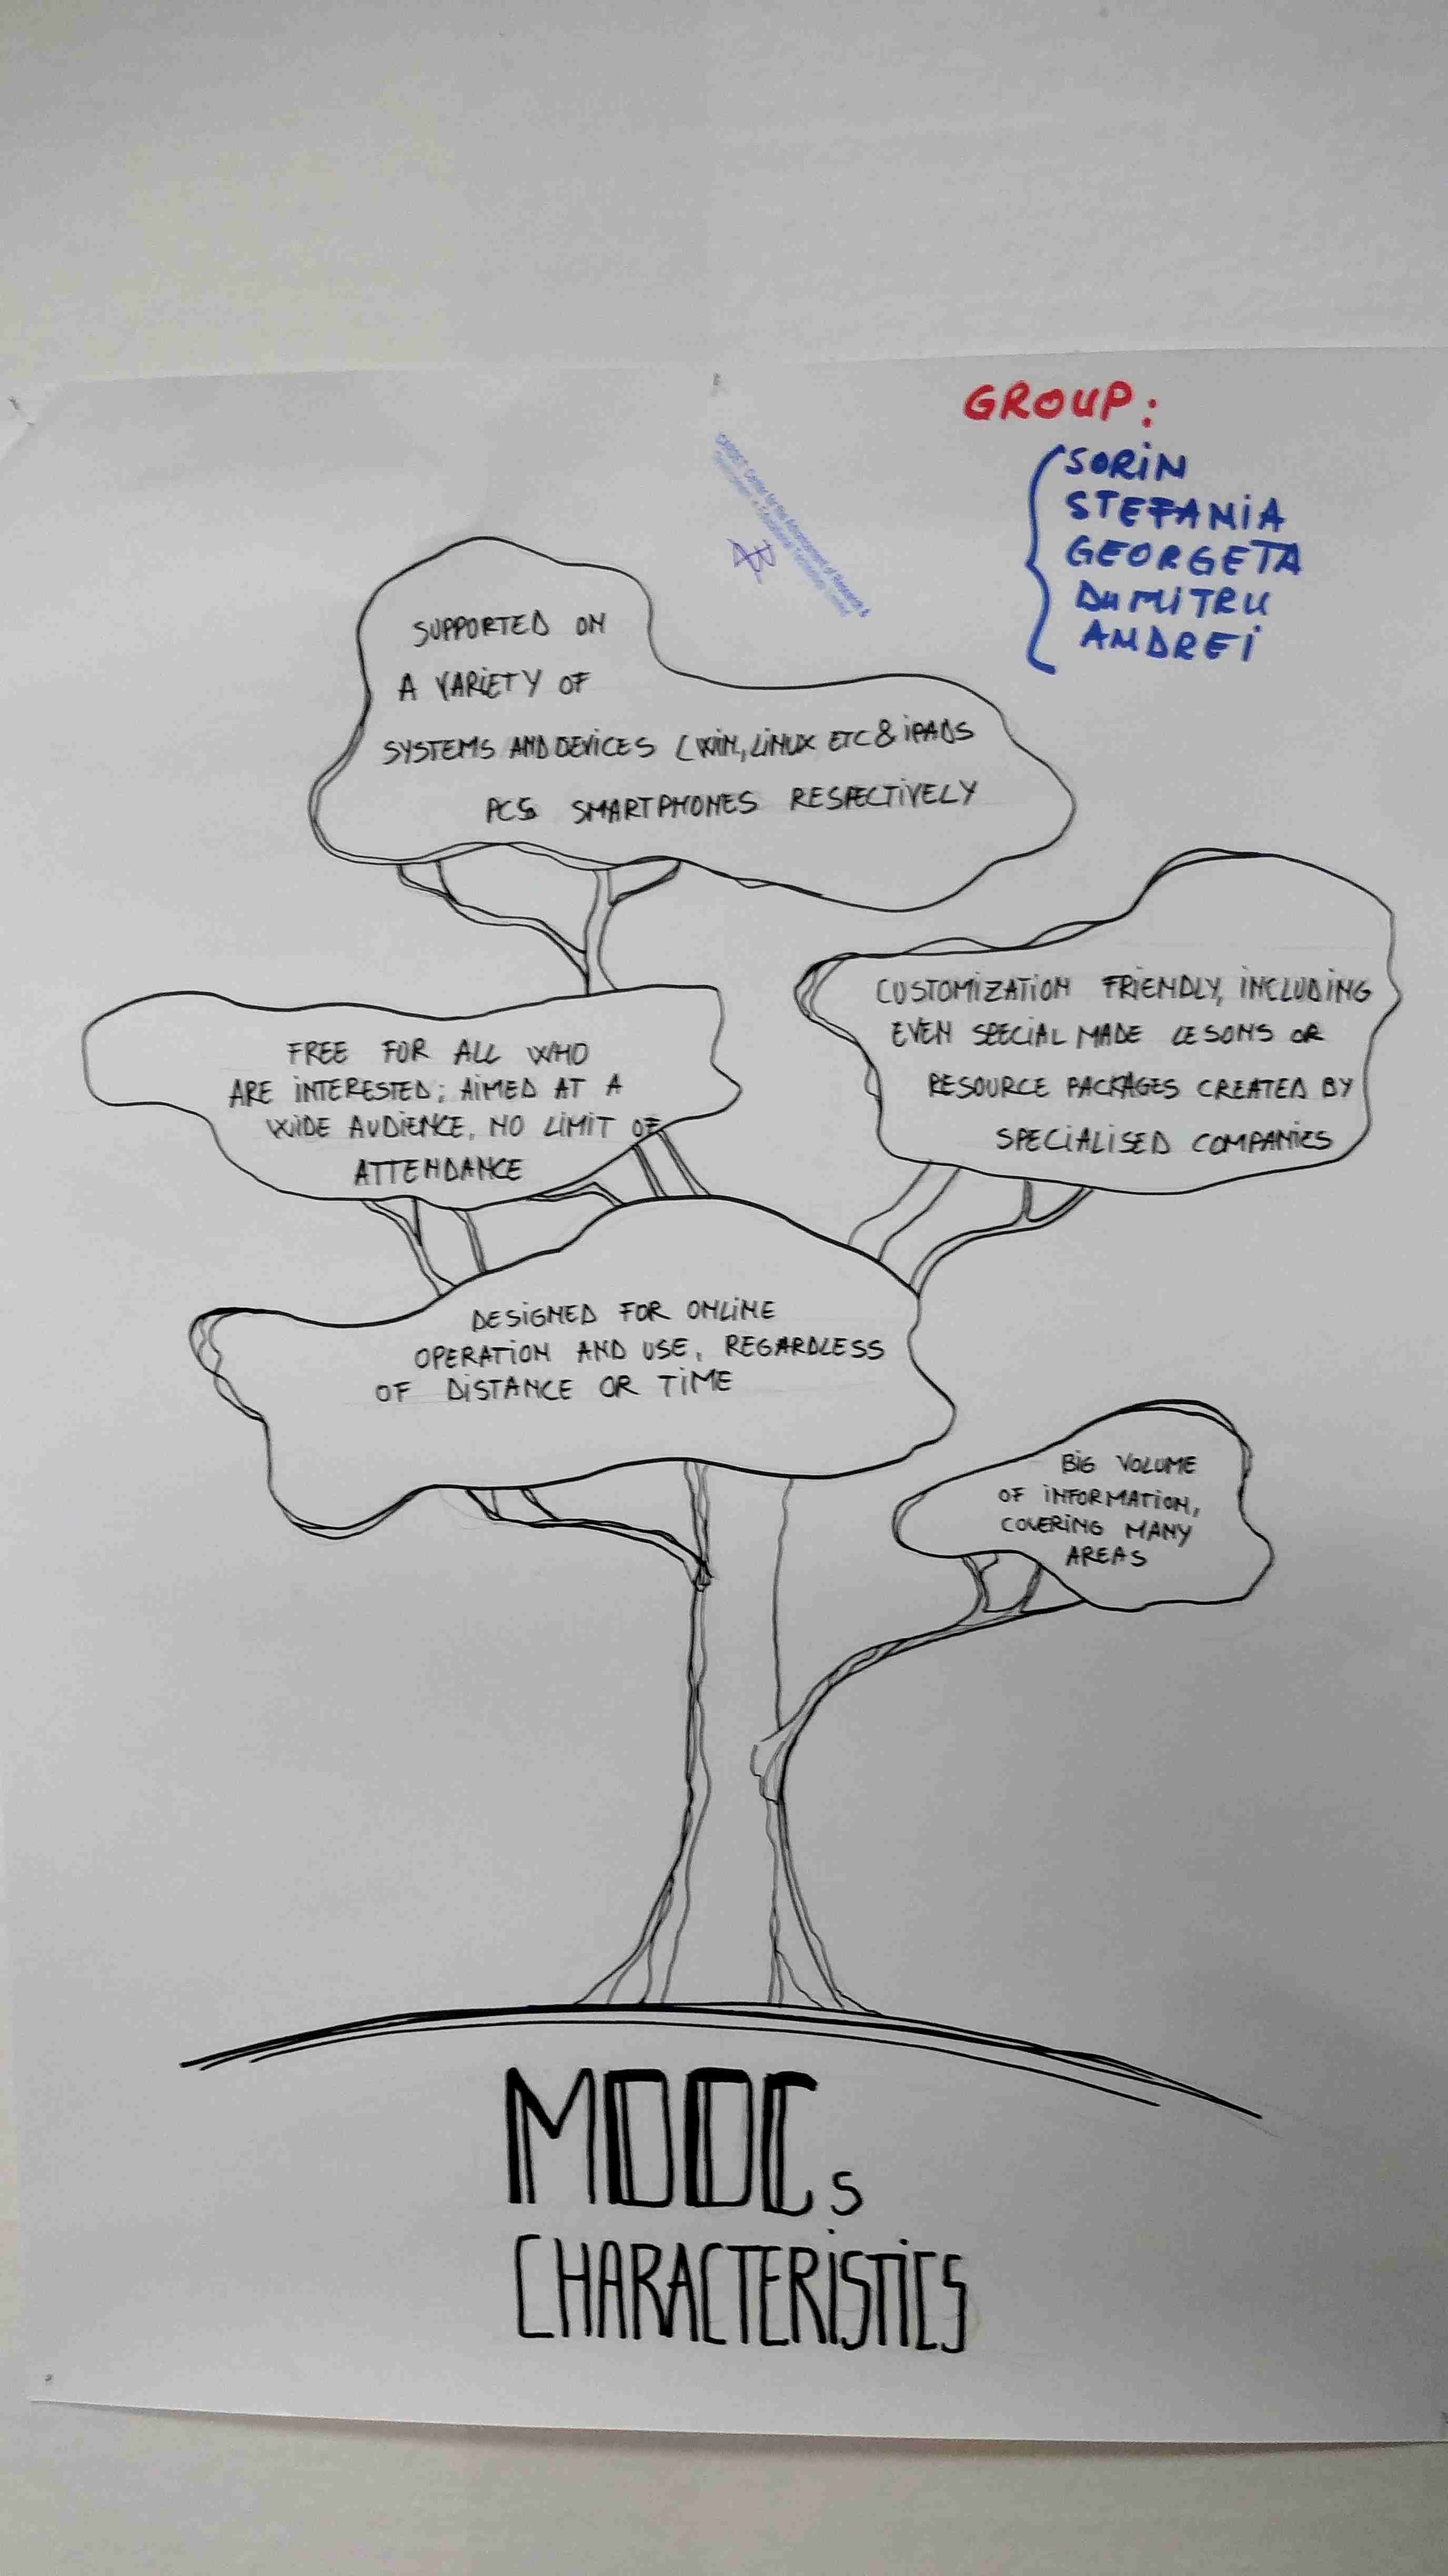 GROUP:
SORIN
STEFANIA
GEORGETA
DUMITRU
ANDREI
SUPPORTED ON
A VARIETY OF
SYSTEMS AND DEVICES (WIN, LINUX ETC & IPADS
PCS SMARTPHONES RESPECTIVELY
CUSTOMIZATION FRIENDLY, INCLUDING
EVEN SPECIAL MADE LESONS OR
RESOURCE PACKAGES CREATED BY
SPECIALISED COMPANIES
FREE FOR ALL WHO
ARE INTERESTED; AIMED AT A
WIDE AUDIENCE, NO LIMIT OF
ATTENDANCE
DESIGNED FOR ONLINE
OPERATION AND USE, REGARDLESS
OF DISTANCE OR TIME
BIG VOLUME
OF INFORMATION,
COVERING MANY
AREAS
MOOCs
CHARACTERISTICS